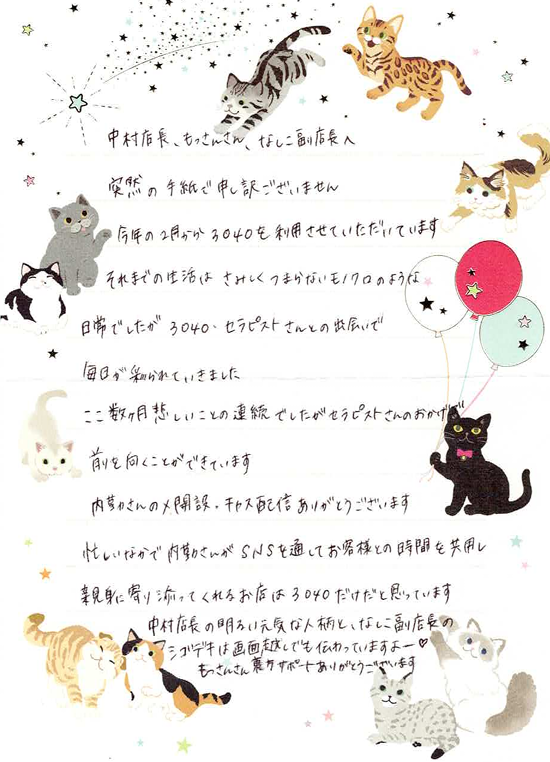 中村店長、もっさんさん、なしこ副店長へ
突然の手紙で申し訳ございません
今年の2月から3040を利用させていただいています
それまでの生活はさみしくつまらないモノクロのような
日常でしたが3040・セラピストさんとの出会いで
毎日が彩られていきました
ここ数ヶ月悲しいことの連続でしたがセラピストさんのおかげで
前を向くことができています
内勤さんのX開設・キャス配信ありがとうございます
忙しいなかで内勤さんがSNSを通してお客様との時間を共用し
親身に寄り添ってくれるお店は3040だけだと思っています
中村店長の明るい元気な人柄と、なしこ副店長の
シゴデキは画面越しでも伝わっていますよー♡
もっさんさん裏方サポートありがとうございます